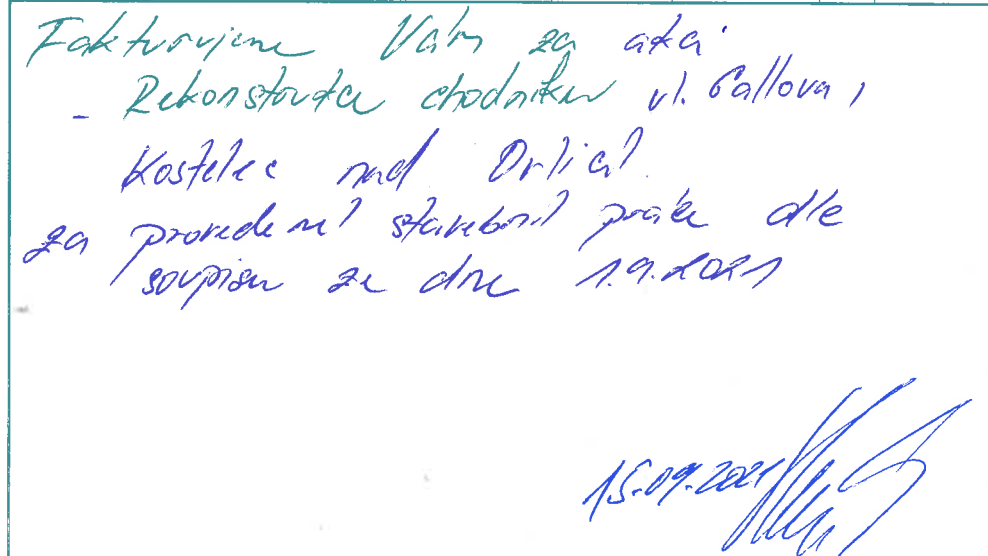 Fakturujeme Vám za akci
- Rekonstrukce chodníků ul. Gallova,
Kostelec nad Orlicí
za provedené stavební práce dle
soupisu ze dne 1.9.2021
15.09.2021